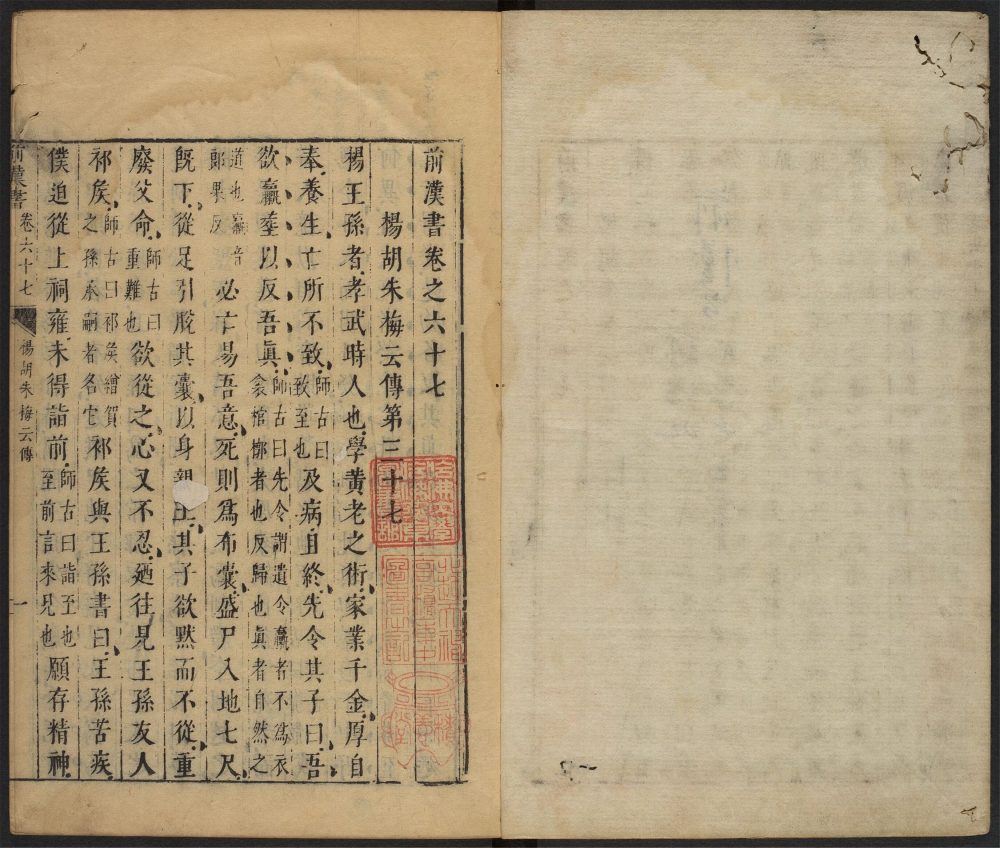 前漢書卷之六十七
楊胡朱梅云傳第三十七
楊王孫者孝武時人也學黃老之術家業千金厚自
奉養生亡所不致師古曰致至也及病且終先令其子曰吾
欲臝葬以反吾眞師古曰先令謂遺令臝者不爲衣衾棺槨者也反歸也眞者自然之
道也臝音郎果反必亡易吾意死則爲布囊盛尸入地七尺
旣下從足引脫其囊以身親土其子欲黙而不從重
廢父命師古曰重難也欲從之心又不忍廼往見王孫友人
祁矦師古曰祁矦繒賀之孫承嗣者名它祁矦與王孫書曰王孫苦疾
僕迫從上祠雍未得詣前師古曰詣至也至前言來見也願存精神
前漢書 卷六十七 楊胡朱梅云傳 一